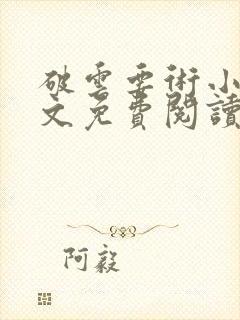 破雲要術小
文免費閱讀
阿毅